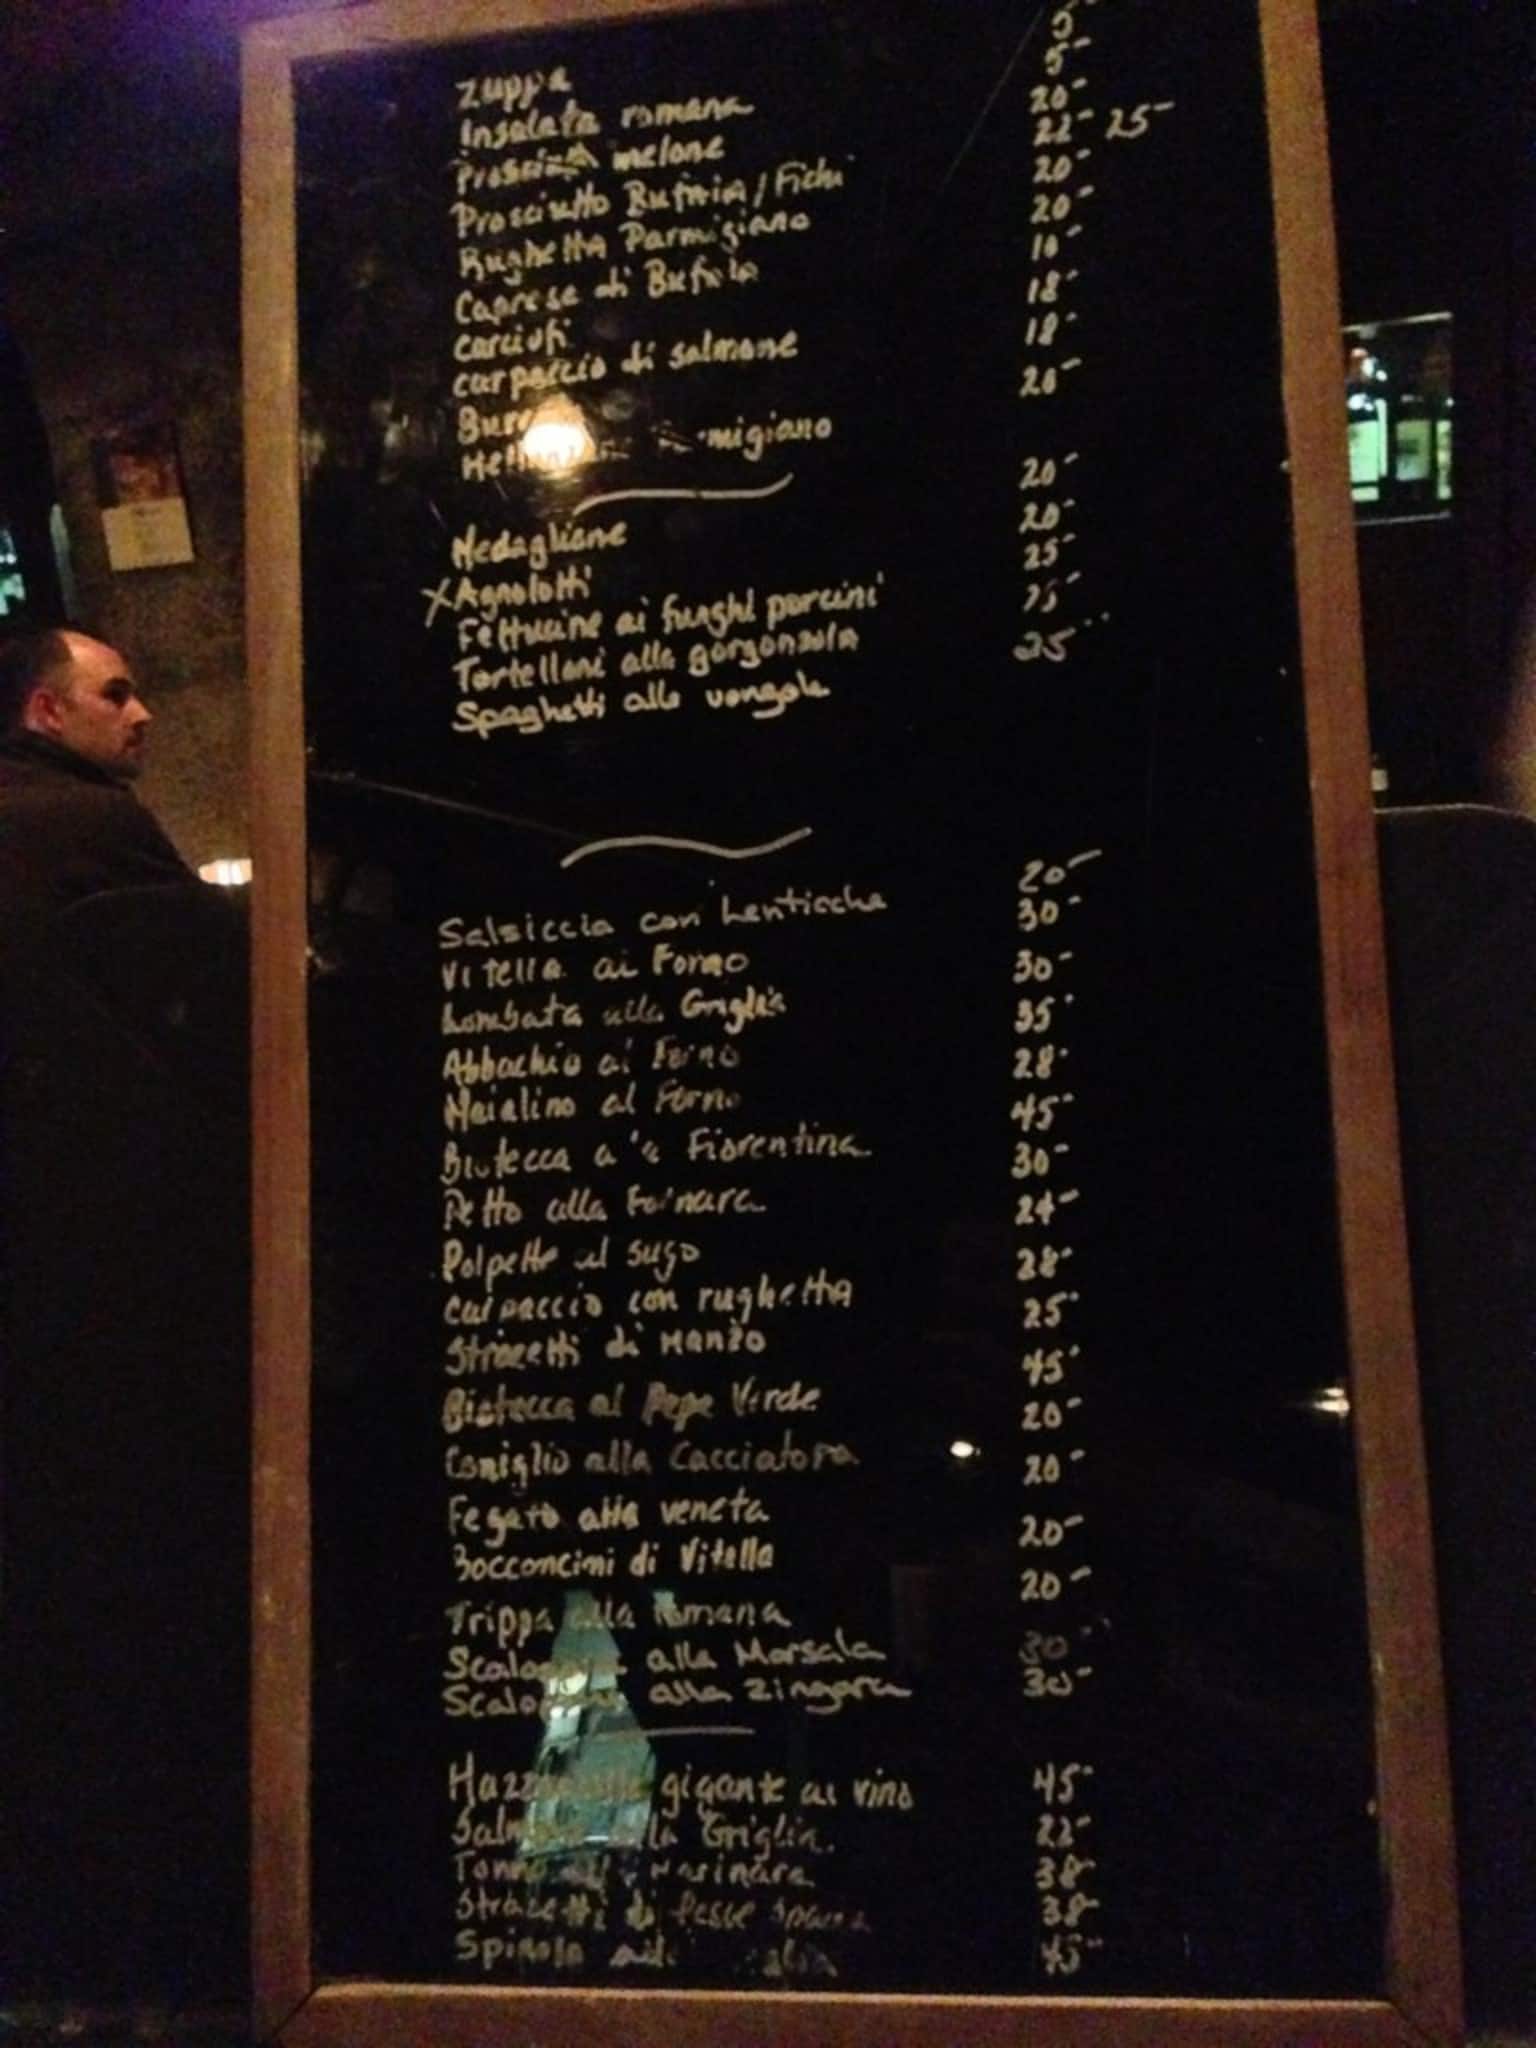 Zuppa 5-
Insalata romana 5-
melone 20-
Prosciutto Bufala/Fichi 22- 25-
Rughetta Parmigiano 20-
Caprese di Bufala 20-
Carciofi 10-
Carpaccio di salmone 18-
18-
migiano 20-
Medaglione 20-
X Agnolotti 20-
Fettucine ai funghi porcini 25-
Tortelloni alla gorgonzola 25-
Spaghetti alle vongole 25-
Salsiccia con Lenticche 20-
Vitella al Forno 30-
Lombata alla Griglia 30-
Abbachio al Forno 35-
Maialino al Forno 28-
Bistecca a la Fiorentina 45-
Petto alla Fornara 30-
Polpette al sugo 24-
Carpaccio con rughetta 28-
Stracetti di Manzo 25-
Bistecca al Pepe Verde 45-
Coniglio alla Cacciatora 20-
Fegato alla veneta 20-
Bocconcini di Vitella 20-
Trippa alla romana 20-
alla Marsala 30-
alla Zingara 30-
gigante al vino 45-
Griglia. 22-
Tonno Marinara 38-
Stracetti di Pesce Spada 38-
Spigola 45-